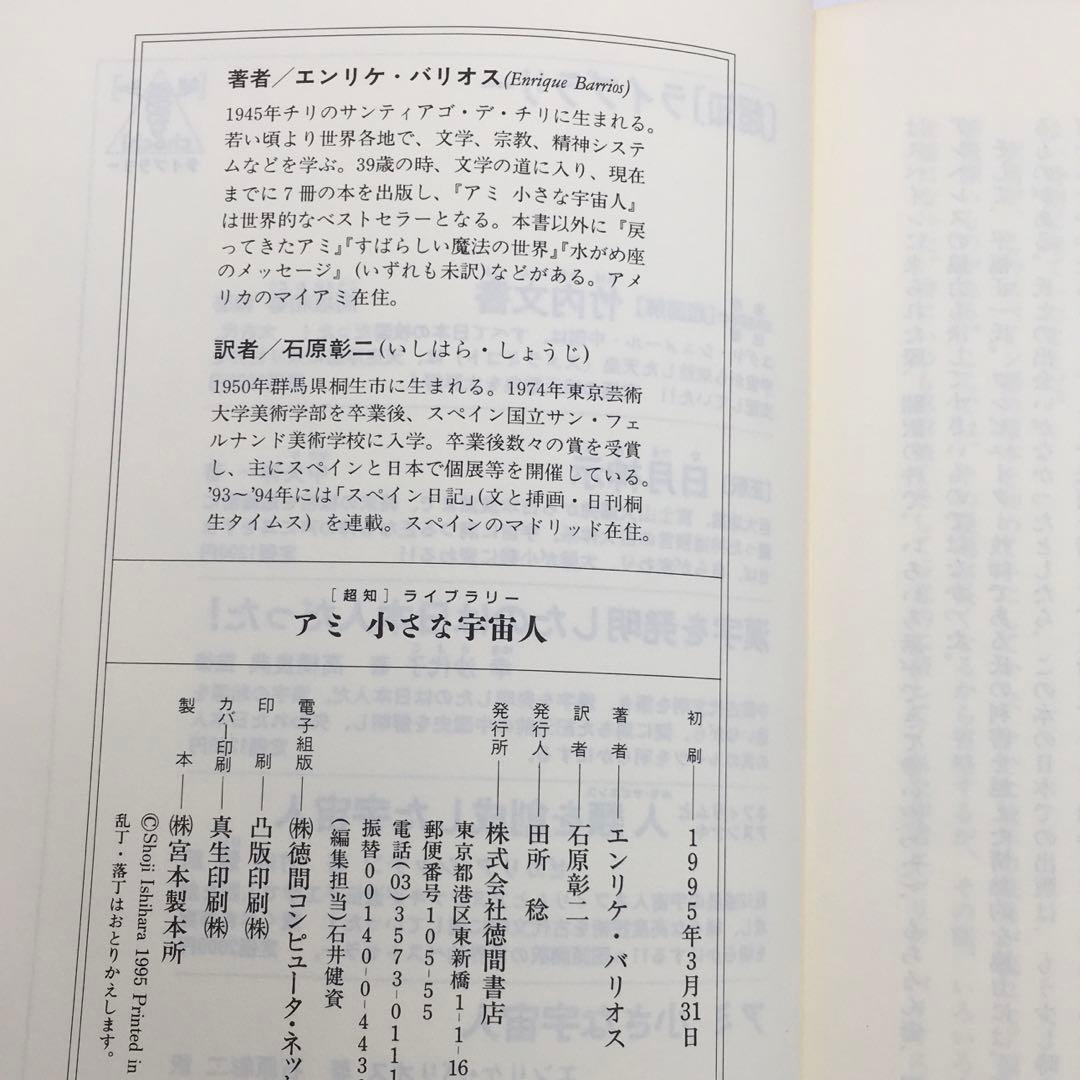 著者／エンリケ・バリオス(Enrique Barrios)
1945年チリのサンティアゴ・デ・チリに生まれる。
若い頃より世界各地で、文学、宗教、精神システ
ムなどを学ぶ。39歳の時、文学の道に入り、現在
までに7冊の本を出版し、『アミ 小さな宇宙人』
は世界的なベストセラーとなる。本書以外に『戻
ってきたアミ』『すばらしい魔法の世界』『水がめ座
のメッセージ』(いずれも未訳)などがある。アメ
リカのマイアミ在住。
訳者／石原彰二(いしはら・しょうじ)
1950年群馬県桐生市に生まれる。1974年東京芸術
大学美術学部を卒業後、スペイン国立サン・フェ
ルナンド美術学校に入学。卒業後数々の賞を受賞
し、主にスペインと日本で個展等を開催している。
'93〜'94年には「スペイン日記」(文と挿画・日刊桐
生タイムス)を連載。スペインのマドリッド在住。
［超知］ライブラリー
アミ 小さな宇宙人
初刷──1995年3月31日
著者──エンリケ・バリオス
訳者──石原彰二
発行人──田所 稔
発行所──株式会社徳間書店
東京都港区東新橋1-1-16
郵便番号105-55
電話(03)3573-011
振替00140-0-443
(編集担当)石井健資
電子組版──㈱徳間コンピュータ・ネッ
印刷──凸版印刷㈱
カバー印刷──真生印刷㈱
製本──㈱宮本製本所
©Shoji Ishihara 1995 Printed in
乱丁・落丁はおとりかえします。